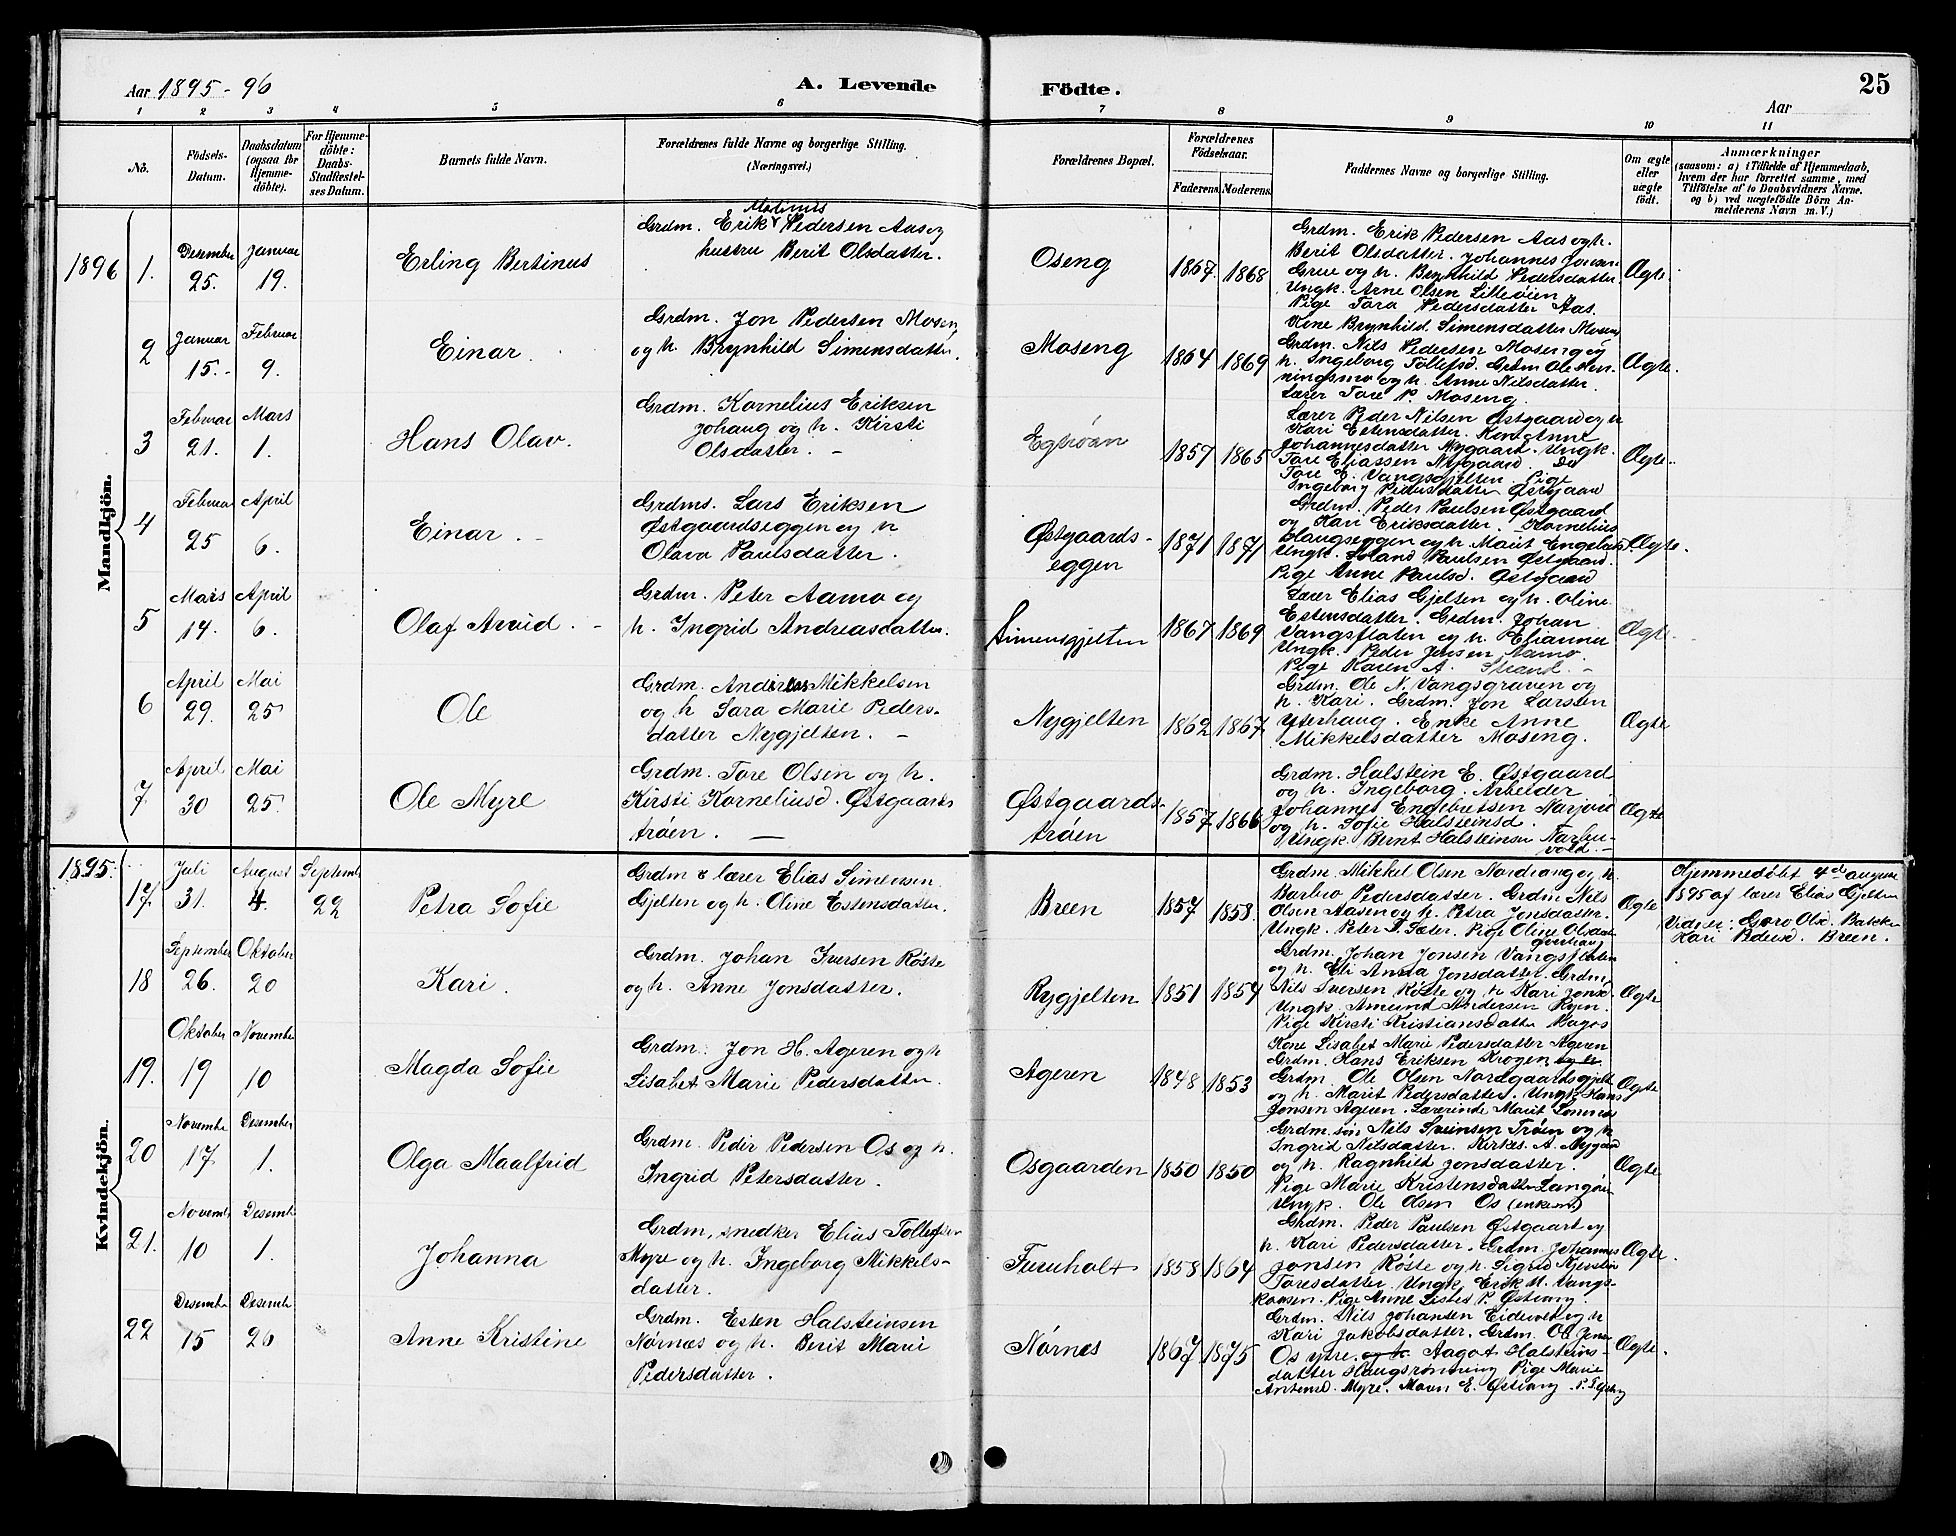 Aar 1895-96
A. Levende
Födte.
Aar
25
1 2 3 4 5 6 7 8 9 10 11
No.
Födsels-
Datum.
Daabsdatum
(ogsaa for
Hjemme-
döbte).
For Hjemme-
döbte:
Daabs-
Stadfæstel-
ses Datum.
Barnets fulde Navn.
Forældrenes fulde Navne og borgerlige Stilling.
(Næringsvei.)
Forældrenes Bopæl.
Forældrenes
Födselsaar.
Faderens. Moderens.
Faddernes Navne og borgerlige Stilling.
Om ægte
eller
uægte
født.
Anmærkninger
(saasom: a) i Tilfælde af Hjemmedaab,
hvem der har forrettet samme, med
Tilföielse af to Daabsvidners Navne.
og b) ved uægtefödte Börn An-
melderens Navn m. V.)
Mandkjön.
1896
1.
Desember
25.
Januar
19.
Erling Bertinus
Grdm. Erik Pedersen Aas og
hustru Berit Olsdatter.
Oseng
1867 1868
Grdm. Erik Pedersen Aas og h.
Berit Olsdatter. Johannes
Grue og h. Brynhild Pedersdatter.
Ungk. Arne Olsen Lilleøien
Pige Tora Pedersdatter Aas.
Ægte
2
Januar
15.
Februar
9.
Einar.
Grdm. Jon Pedersen Moseng
og h. Brynhild Simensdatter.
Moseng
1864 1869
Kone Brynhild Simensdatter Moseng
Grdm. Nils Pedersen Moseng og
h. Ingeborg Tollefsd. Grdm Ole Hen-
ningsmo og h. Anne Nilsdatter.
Lærer Tore P. Moseng.
Ægte.
3
Februar
21.
Mars
1.
Hans Olav.
Grdm. Kornelius Eriksen
Johaug og h. Kirsti
Olsdatter.
1857 1865
Lærer Peder Nilsen Østgaard og h
Kari Estensdatter. Kone Anne
Johannesdatter Nygaard. Ungk.
Tore Eliassen Nygaard. Do
Tore E. Vangsgjelten. Pige
Ingeborg Pedersdatter Østgaard
Ægte.
4
Februar
25
April
6.
Einar.
Grdms. Lars Eriksen
Østgaardseggen og h
Olava Paulsdatter.
Østgaards-
eggen
1871 1871
Grdm. Peder Paulsen Østgaard
og Kari Eriksdatter. Kornelius
Haugseggen og h. Marit Engebretsd.
Ungk. Paulsen Østgaard.
Pige Anne Paulsd. Østgaard
Ægte.
5
Mars
14.
April
6.
Olaf Arvid.
Grdm. Peter Aamo og
h. Ingrid Andreasdatter.
Simensgjelten
1867 1869
Lærer Elias Gjelten og h. Oline
Estensdatter. Grdm. Johan
Vangsflaten og h. Elianna
Ungk. Peder Jensen Aamo
Pige Karen A. Strand.
Ægte
6
April
29.
Mai
25
Ole
Grdm. Andreas Mikkelsen
og h Sara Marie Peders-
datter Nygjelten.
Nygjelten
1862 1867
Grdm. Ole N. Vangsgraven og
h. Kari. Grdm. Jon Larsten
Yterhaug. Enke Anne
Mikkelsdatter Moseng.
Ægte
7
April
30
Mai
25.
Ole Myre
Grdm. Tore Olsen og h.
Kirsti Korneliusd. Østgaards
trøen.
Østgaards-
trøen
1857 1866
Grdm. Halstein E. Østgaard
og h. Ingeborg. Arbeider
Johannes Engebretsen
og h. Sofie Halsteinsd.
Ungk. Bernt Halsteinsen Narbu-
vold.
Ægte
Kvindekjön.
1895.
17
Juli
31.
August
4.
Septemb.
22
Petra Sofie
Grdm & lærer Elias Simensen
Gjelten og h. Oline Estensdatter.
Breen
1857 1858.
Grdm. Mikkel Olsen Nordvang og h.
Barbro Pedersdatter. Grdm Nils
Olsen Aasen og h. Petra Jonsdatter.
Ungk. Peter T. Sæter. Pige Oline Olsdatter
Ægte
Hjemmedøbt 4de august
1895 af lærer Elias Gjelten
Vidner: Goro Olsd. Bakken
Kari Pedersd. Breen.
18
September
26.
Oktober
20
Kari.
Grdm. Johan Iversen Røste
og h. Anne Jonsdatter.
Rygjelten
1851 1854
Grdm. Johan Jonsen Vangsflaten
og h. Eli Anna Jonsdatter. Grdm.
Nils Iversen Røste og h Kari Jonsd.
Ungk. Amund Andersen Ryen.
Pige Kirsti Kristiansdatter
Ægte
19.
Oktober
19
November
10
Magda Sofie
Grdm. Jon H. Ageren og h
Lisabet Marie Pedersdatter.
Ageren
1848 1853
Kone Lisabet Marie Pedersdatter Ageren
Grdm. Hans Eriksen Krogen
Grdm. Ole Olsen Nordgaardsgjelt
og h. Marit Pedersdatter. Ungk. Hans
Jonsen Ageren. Lærerinde Marit
Ægte
20
November
17
Desember
1.
Olga Maalfrid
Grdm. Peder Pedersen Os og h.
Ingrid Petersdatter.
Osgaarden
1850 1850
Grdm. Nils Svensen Trøen og h
Ingrid Nilsdatter. Kirkes. A. Nygaard
og h. Ragnhild Jonsdatter.
Pige Marie Kristensdatter Langøien
Ungk. Ole Olsen Os (enkem.)
Ægte
21.
Novemb.
10
Desemb.
1.
Johanna
Grdm, snedker Elias Tollefsen
Myre og h. Ingeborg Mikkels-
datter.
Furuholt
1858 1864
Grdm. Peder Paulsen Østgaard og
h. Kari Pedersdatter. Grdm. Johannes
Jonsen Røste og h. Sigrid
Toresdatter. Ungk. Erik M. Vangs-
Pige Anne Lisbet P. Østvang.
Ægte
22
Desemb.
15
Desemb.
26
Anne Kristine
Grdm. Esten Halsteinsen
Nørnæs og h. Berit Marie
Pedersdatter.
Nørnæs
1867 1875
Grdm. Nils Johansen Eidsvold og h
Kari Jakobsdatter. Grdm. Ole Jensen
Os ytre. og h. Aagot Halsteins-
datter Haugsrønning Pige Marie
Myre. E. Østvang
Ægte.